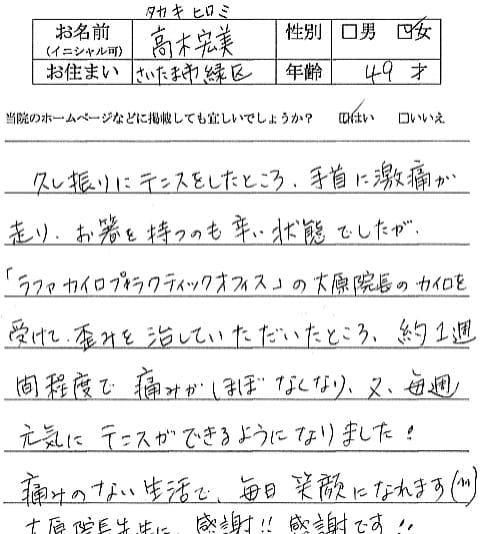 タカキ ヒロミ
お名前 (イニシャル可) 高木宏美 性別 □男 ☑女
お住まい さいたま市緑区 年齢 49 才
当院のホームページなどに掲載しても宜しいでしょうか? ☑はい □いいえ
久し振りにテニスをしたところ、手首に激痛が
走り、お箸を持つのも辛い状態でしたが、
「ラファカイロプラクティックオフィス」の大原院長のカイロを
受けて、歪みを治していただいたところ、約1週
間程度で痛みがほぼなくなり、又、毎週
元気にテニスができるようになりました!
痛みのない生活で、毎日笑顔になれます(^^)
大原院長先生に、感謝!! 感謝です!!